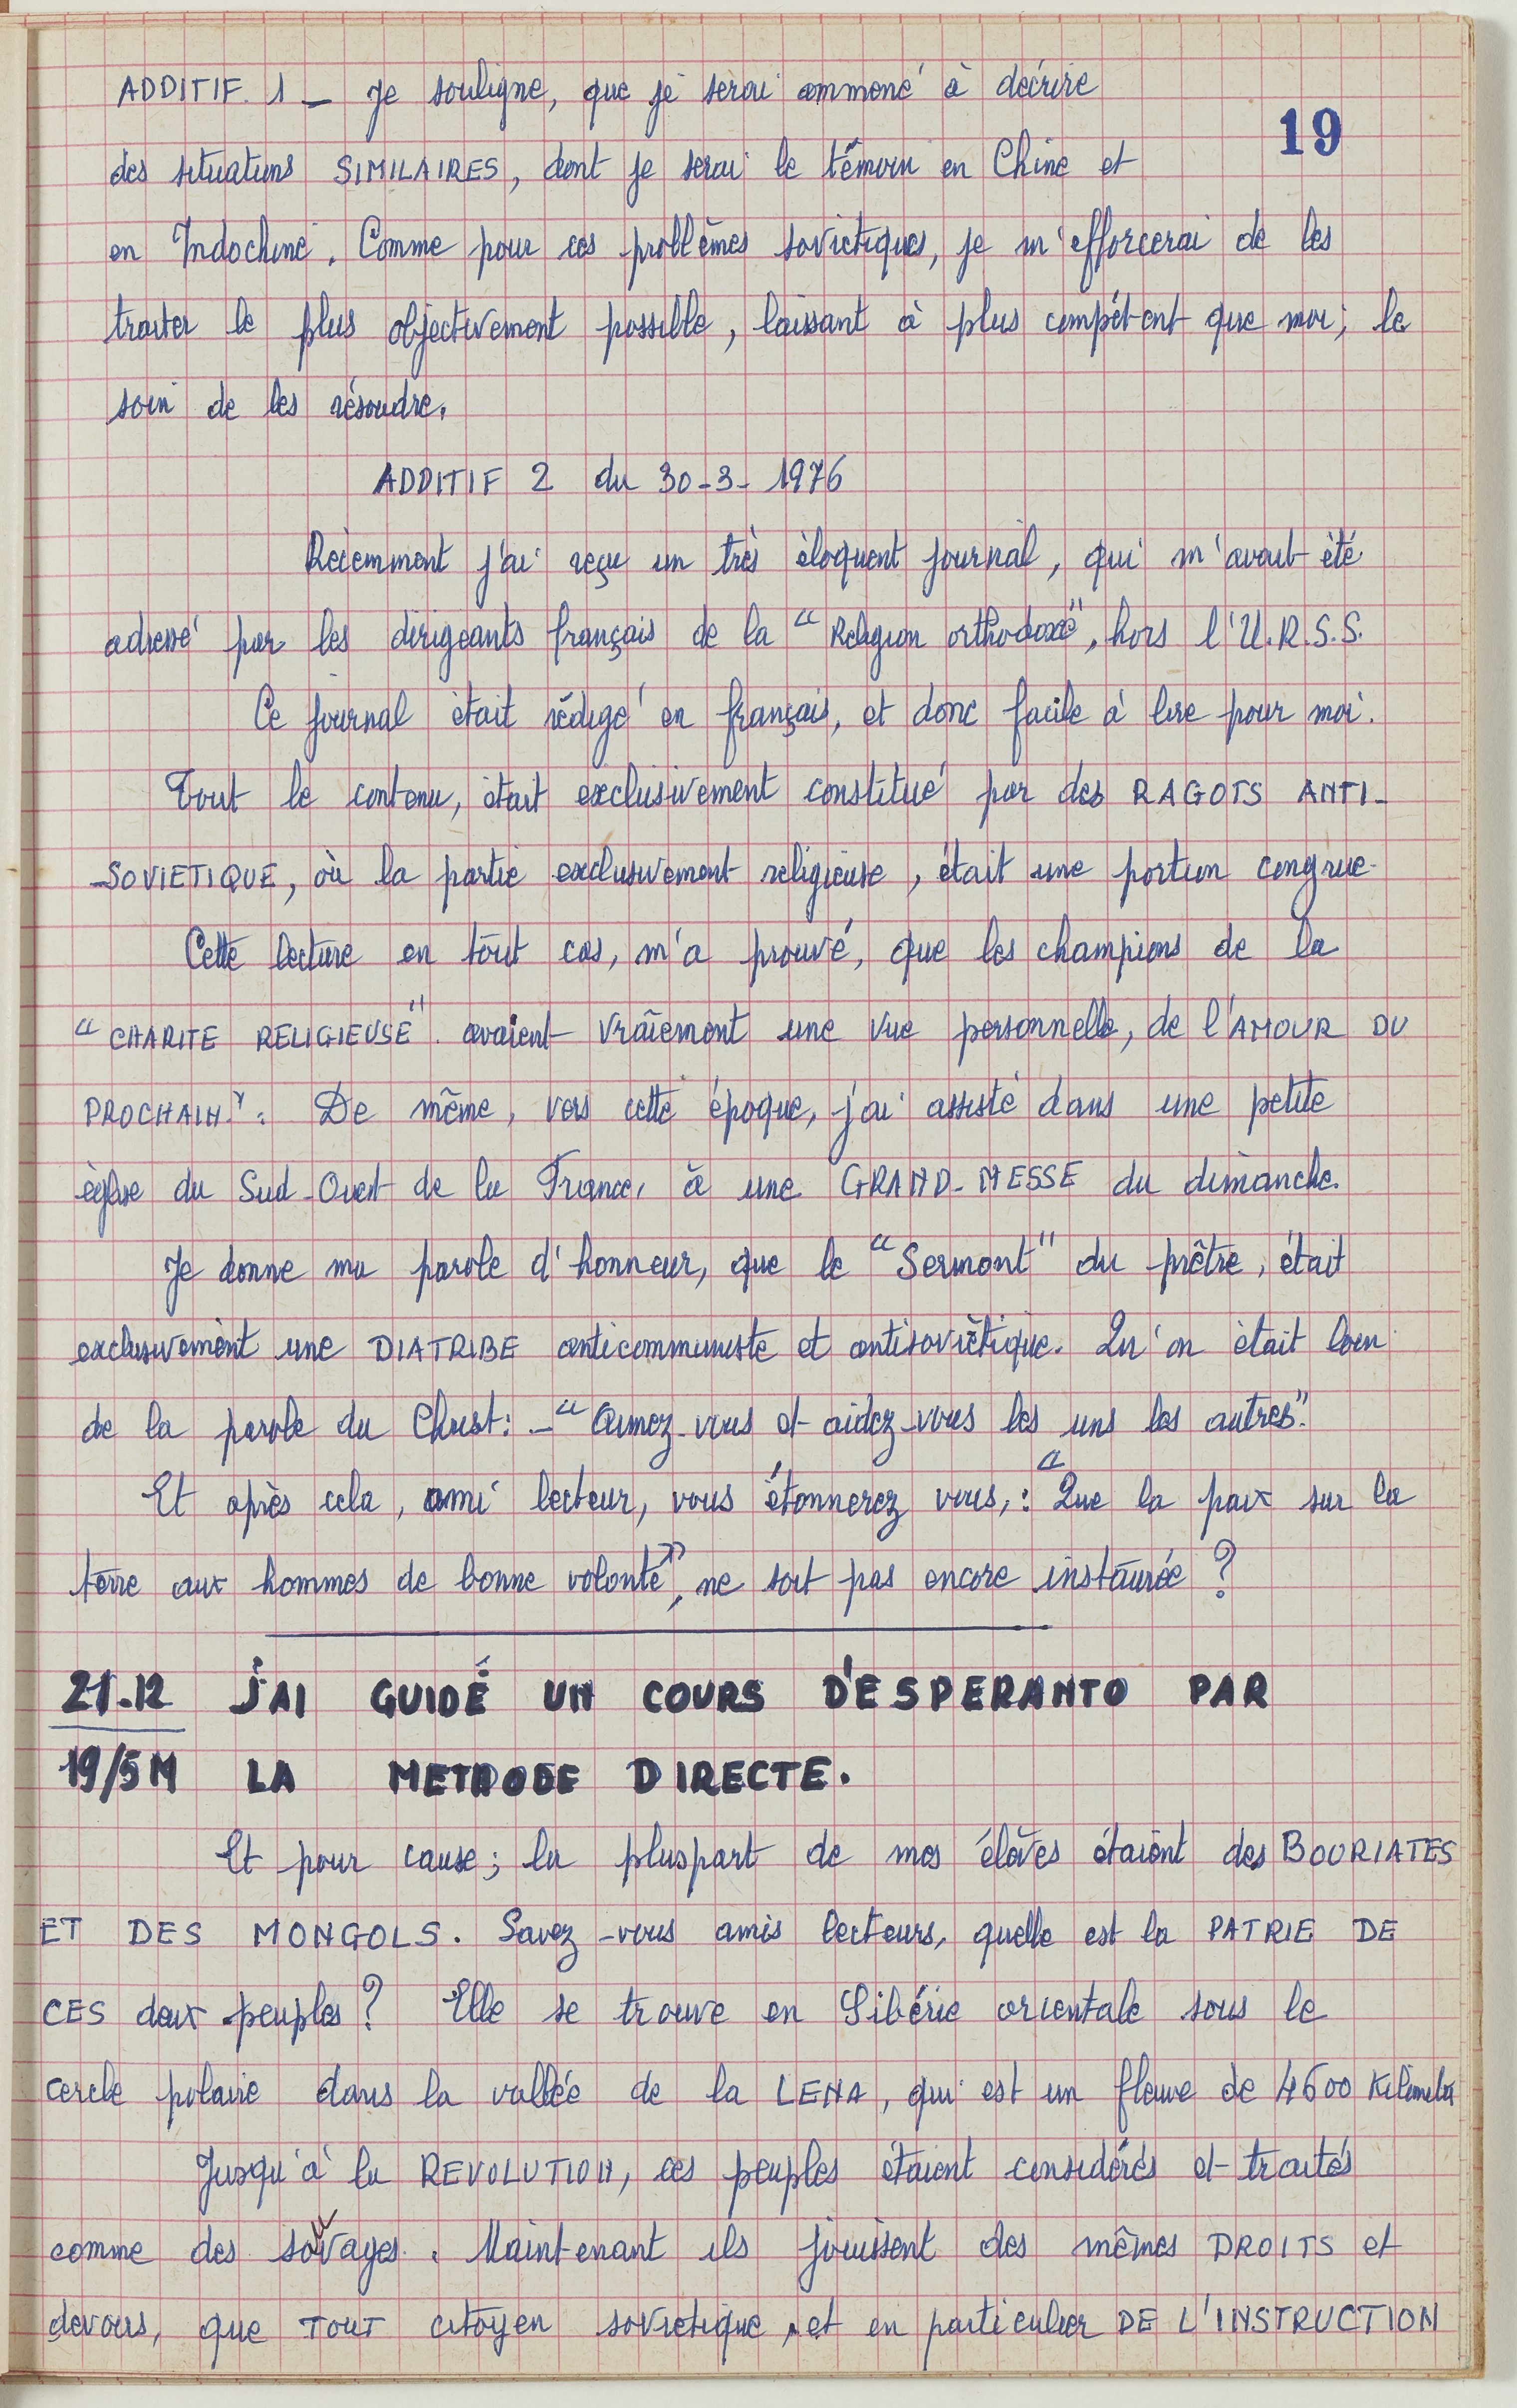 ADDITIF. 1 _ Je souligne, que je serai ammené à décrire
19
des situations SIMILAIRES, dont je serai le témoin en Chine et
en Indochine. Comme pour ces problèmes soviétiques, je m'efforcerai de les
traiter le plus objectivement possible, laissant à plus compétent que moi; le
soin de les résoudre.
ADDITIF 2 du 30-3-1976
Récemment j'ai reçu un très éloquent journal, qui m'avait été
adressé par les dirigeants français de la "Religion orthodoxe", hors l'U.R.S.S.
Ce journal était rédigé en français, et donc facile à lire pour moi.
Tout le contenu, était exclusivement constitué par des RAGOTS ANTI-
-SOVIETIQUE, où la partie exclusivement religieuse, était une portion congrue.
Cette lecture en tout cas, m'a prouvé, que les champions de la
"CHARITE RELIGIEUSE". avaient vraiement une vue personnelle, de l'AMOUR DU
PROCHAIN". De même, vers cette époque, j'ai assisté dans une petite
église du Sud-Ouest de la France, à une GRAND-MESSE du dimanche.
Je donne ma parole d'honneur, que le "Sermont" du prêtre, était
exclusivement une DIATRIBE anticommuniste et antisoviétique. Qu'on était loin
de la parole du Christ: - "Aimez-vous et aidez-vous les uns les autres".
Et après cela, ami lecteur, vous étonnerez vous,: "Que la paix sur la
terre aux hommes de bonne volonté", ne soit pas encore instaurée ?
21-12 J'AI GUIDÉ UN COURS D'ESPERANTO PAR
19/5M LA METHODE DIRECTE.
Et pour cause; la pluspart de mes élèves étaient des BOURIATES
ET DES MONGOLS. Savez-vous amis lecteurs, quelle est la PATRIE DE
CES deux peuples? Elle se trouve en Sibérie orientale sous le
cercle polaire dans la vallée de la LENA, qui est un fleuve de 4600 Kilomètr
Jusqu'à la REVOLUTION, ces peuples étaient considérés et traités
comme des sauvages. Maintenant ils jouissent des mêmes DROITS et
devoirs, que TOUT citoyen soviétique, et en particulier DE L'INSTRUCTION